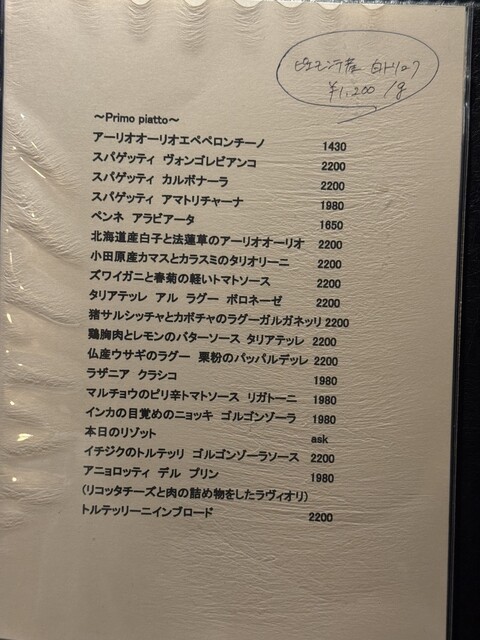 ピエモンテ産 白トリュフ
¥1,200 /g
～Primo piatto～
アーリオオーリオエペペロンチーノ 1430
スパゲッティ ヴォンゴレビアンコ 2200
スパゲッティ カルボナーラ 2200
スパゲッティ アマトリチャーナ 1980
ペンネ アラビアータ 1650
北海道産白子と法蓮草のアーリオオーリオ 2200
小田原産カマスとカラスミのタリオリーニ 2200
ズワイガニと春菊の軽いトマトソース 2200
タリアテッレ アル ラグー ボロネーゼ 2200
猪サルシッチャとカボチャのラグーガルガネッリ 2200
鶏胸肉とレモンのバターソース タリアテッレ 2200
仏産ウサギのラグー 栗粉のパッパルデッレ 2200
ラザニア クラシコ 1980
マルチョウのピリ辛トマトソース リガトーニ 1980
インカの目覚めのニョッキ ゴルゴンゾーラ 1980
本日のリゾット ask
イチジクのトルテッリ ゴルゴンゾーラソース 2200
アニョロッティ デル プリン 1980
(リコッタチーズと肉の詰め物をしたラヴィオリ)
トルテッリーニインブロード 2200